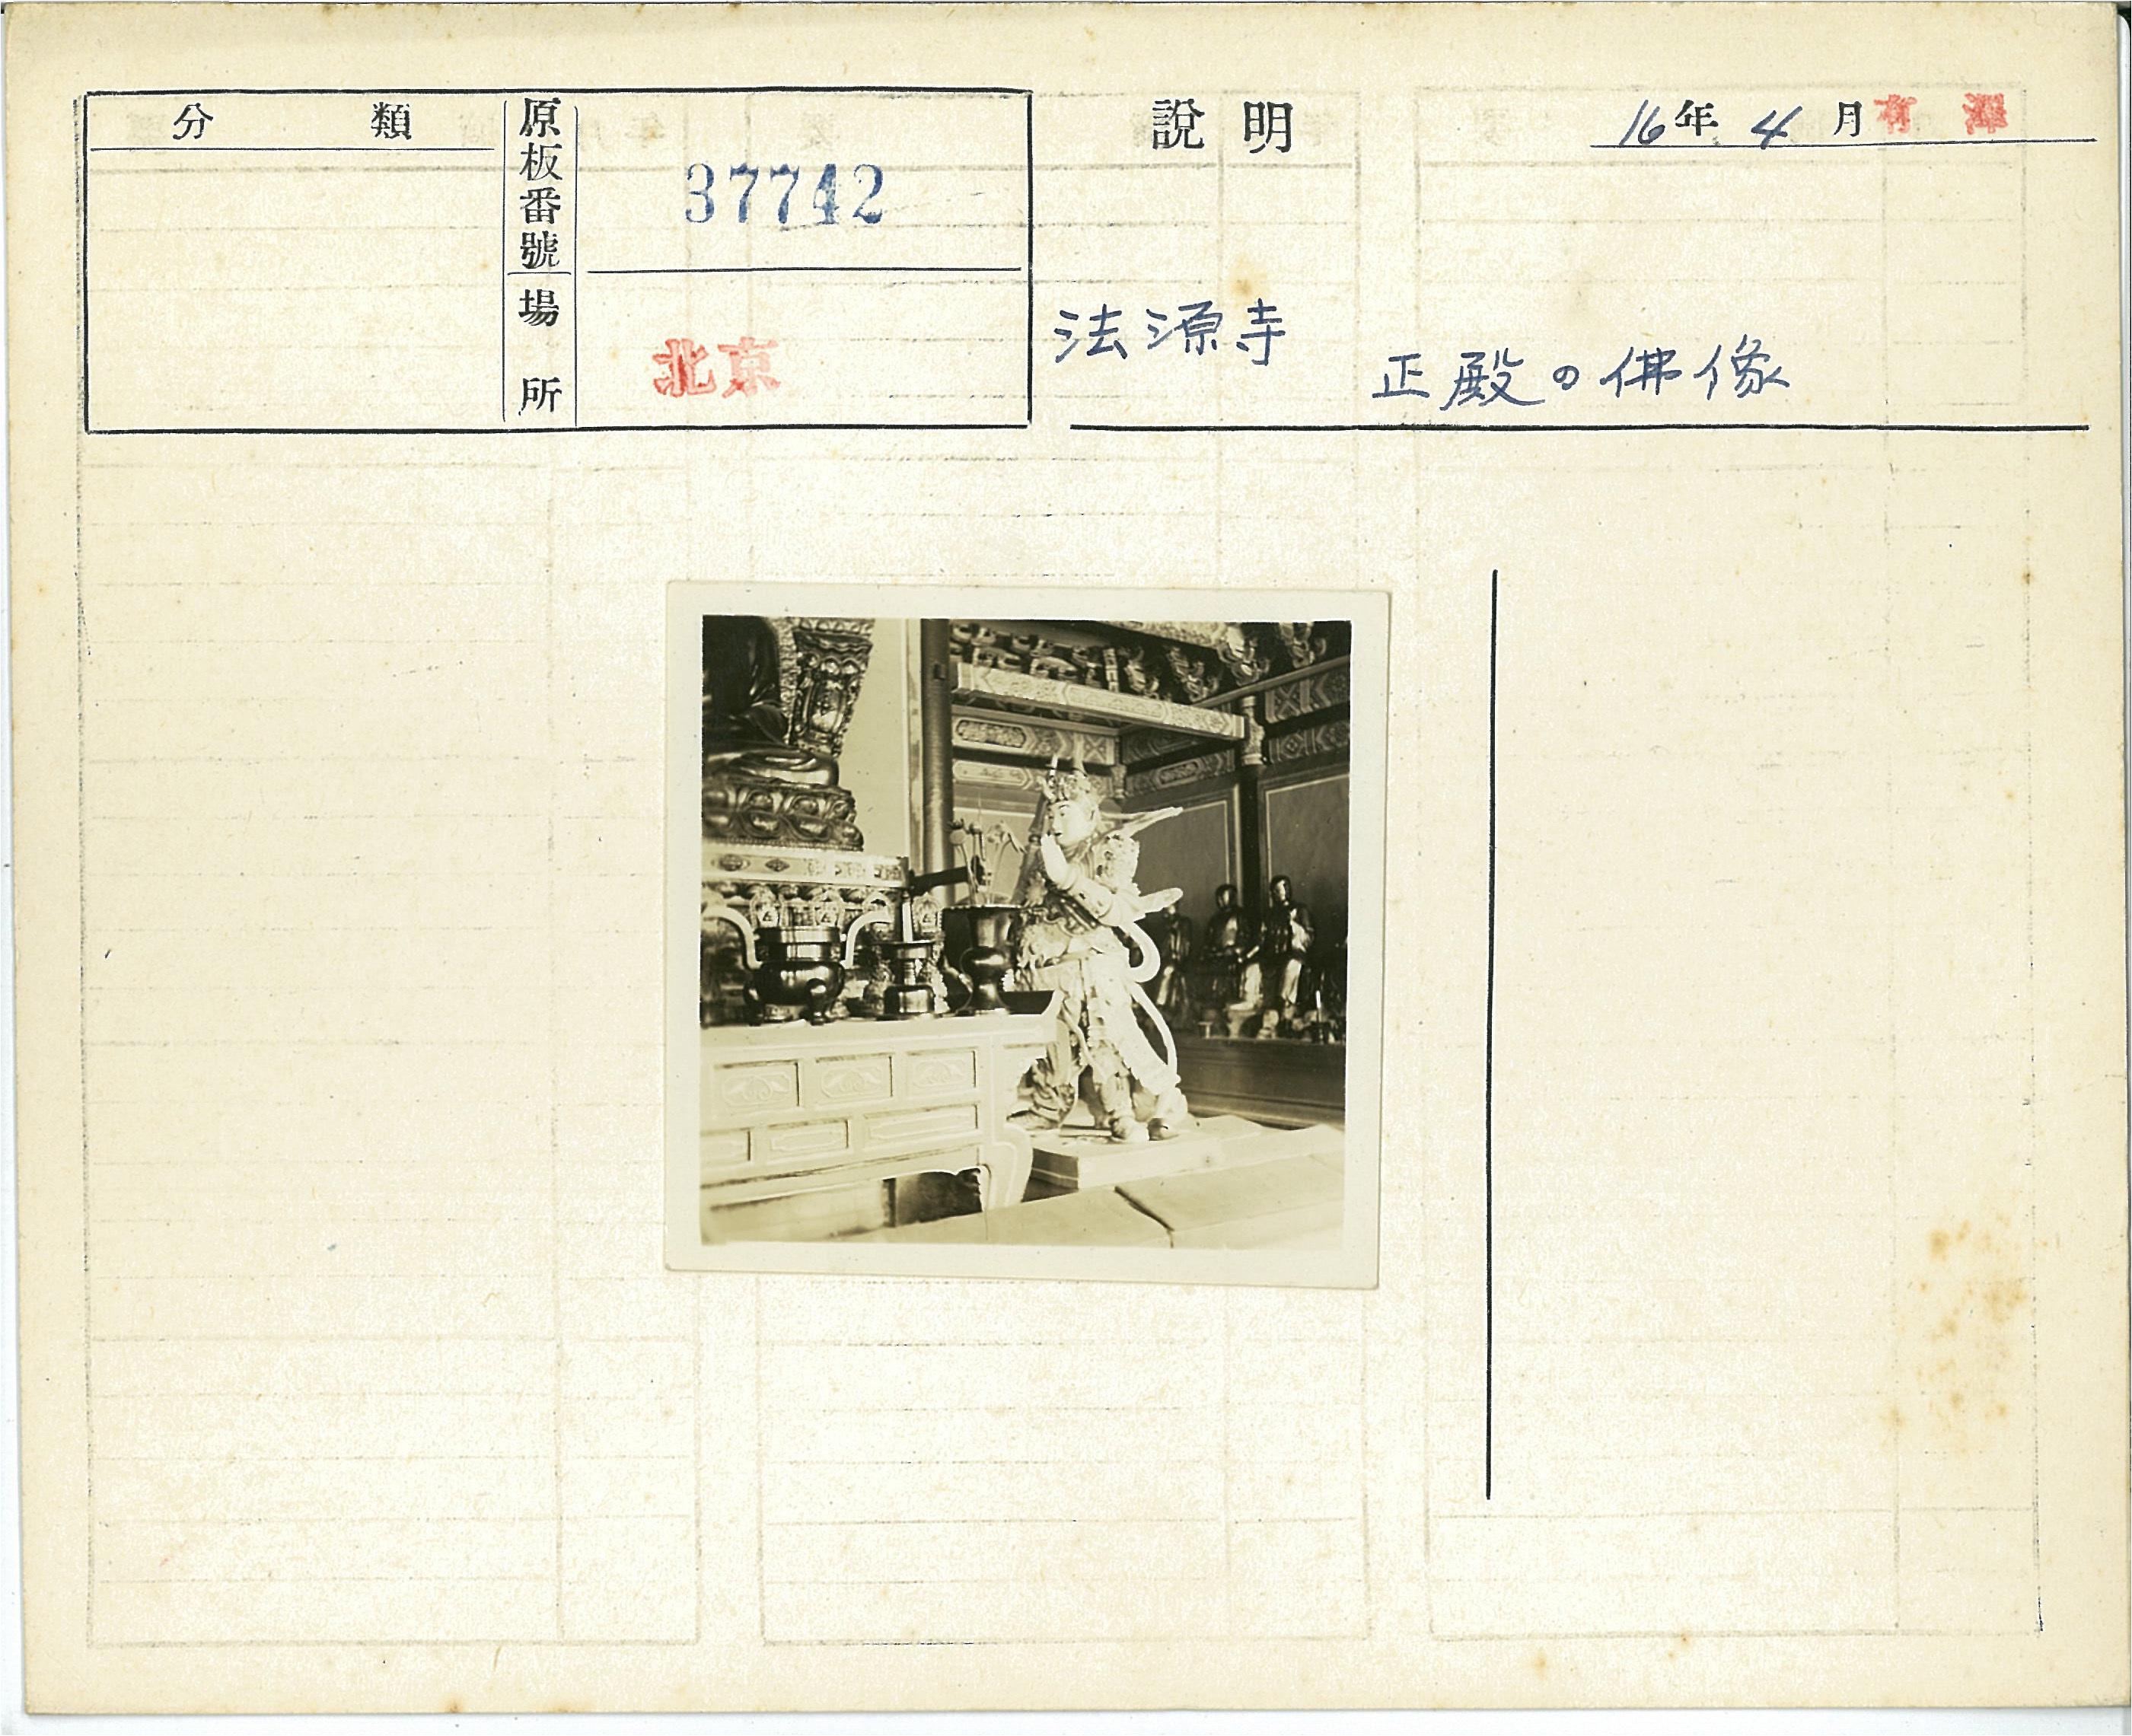 分類
原板番號
37742
場所
北京
說明
16年4月
法源寺
正殿の佛像